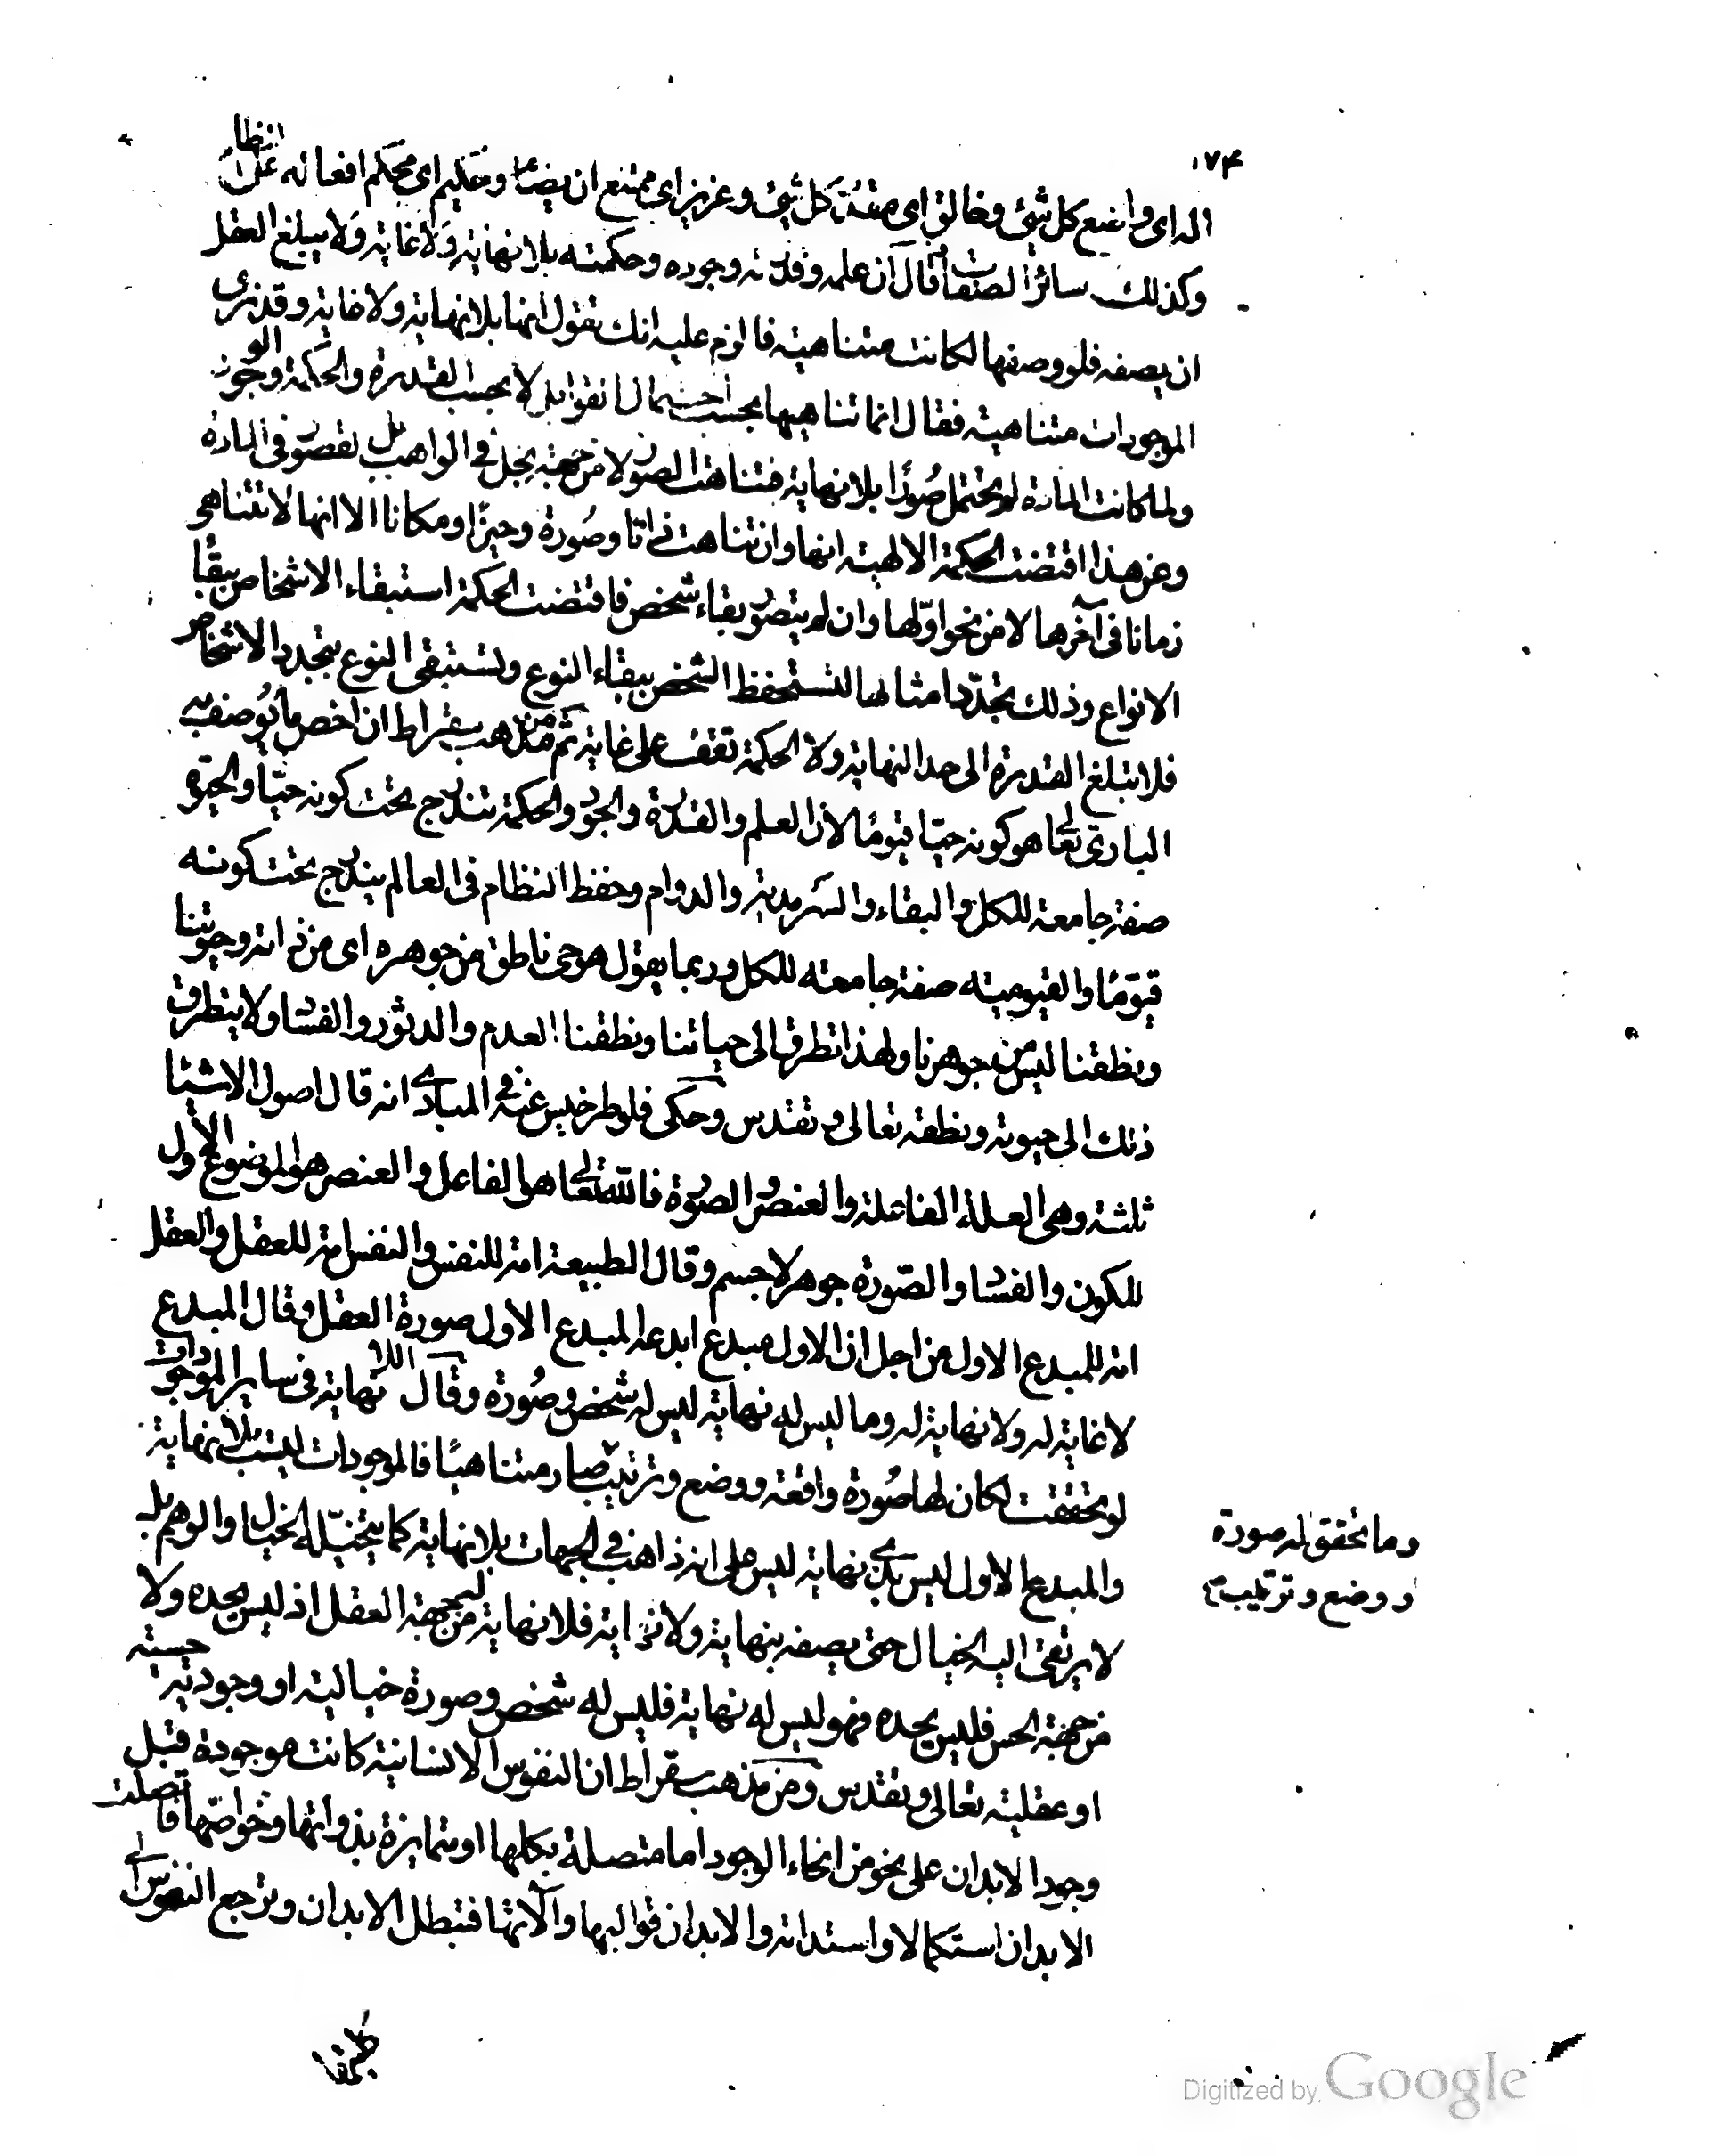 ١٧٤
اله اى واضع كل شئ وخالق اى مقدر كل شئ وعزيز اى ممتنع ان يضام وحكيم اى محكم افعاله على النظام
وكذلك سائر الصفات قال ان علمه وقدرته وجوده وحكمته بلا نهاية ولا غاية ولا يبلغ العقل
ان يصفه فلو وصفها لكانت متناهية فالزم عليه انك تقول انها بلا نهاية ولا غاية وقد نرى
الموجودات متناهية فقال انما تناهيها بحسب احتمال القوابل لا بحسب القدرة والحكمة والوجود
ولما كانت المادة لم تحتمل صورًا بلا نهاية فتناهت الصور لا من جهة بخل فى الواهب بل لقصور فى المادة
وعن هذا اقتضت الحكمة الالهية انها وان تناهت ذاتا وصورة وحيزا ومكانا الا انها لا تتناهى
زمانا فى آخرها لا من نحو اولها وان لم يتصور بقاء شخص فاقتضت الحكمة استبقاء الاشخاص ببقاء
الانواع وذلك بتجدد امثالها لتستحفظ الشخص ببقاء النوع وتستبقى النوع بتجدد الاشخاص
فلا تبلغ القدرة الى حد النهاية ولا الحكمة تقف على غاية ثم من مذهب سقراط ان اخص ما يوصف به
البارى تعالى هو كونه حيّا قيومًا لان العلم والقدرة والجود والحكمة تندرج تحت كونه حيّا والحيوة
صفة جامعة للكل والبقاء والسرمدية والدوام وحفظ النظام فى العالم يندرج تحت كونه
قيومًا والقيومية صفة جامعة للكل وربما يقول هو حى ناطق من جوهره اى من ذاته وحيوتنا
ونطقنا ليس من جوهرنا ولهذا تطرق الى حياتنا ونطقنا العدم والدثور والفساد ولا يتطرق
ذلك الى حيوته ونطقه تعالى وتقدس وحكى فلوطرخيس عنه فى المبادى انه قال اصول الاشيا
ثلثة وهى العلة الفاعلة والعنصر والصورة فالله تعالى هو الفاعل والعنصر هو الموضوع الاول
للكون والفساد والصورة جوهر لا جسم وقال الطبيعة امة للنفس والنفس امة للعقل والعقل
امة للمبدع الاول من اجل ان الاول مبدع ابدعه المبدع الاول صورة العقل وقال المبدع
لا غاية له ولا نهاية له وما ليس له نهاية ليس له شخص وصورة وقال اللا نهاية فى ساير الموجودات
لو تحققت لكان لها صورة واقعة ووضع وترتيب صار متناهيًا فالموجودات ليست بلا نهاية
وما تحقق له صورة
ووضع وترتيب
والمبدع الاول ليس بذى نهاية ليس على انه ذاهب فى الجهات بلا نهاية كما يتخيله الخيال والوهم بل
لا يرتقى اليه الخيال حتى يصفه بنهاية ولا نهاية فلا نهاية له من جهة العقل اذ ليس يحده ولا
من جهة الحس فليس يحده فهو ليس له نهاية فليس له شخص وصورة خيالية او وجودية حسية
او عقلية تعالى وتقدس ومن مذهب سقراط ان النفوس الانسانية كانت موجودة قبل
وجود الابدان على نحو من انحاء الوجود اما متصلة بكلها او متمايزة بذواتها وخواصها فاتصلت
الابدان استكمالا واستدامة والابدان قوالبها وآلاتها فتبطل الابدان وترجع النفوس الى
كليتها
Digitized by Google